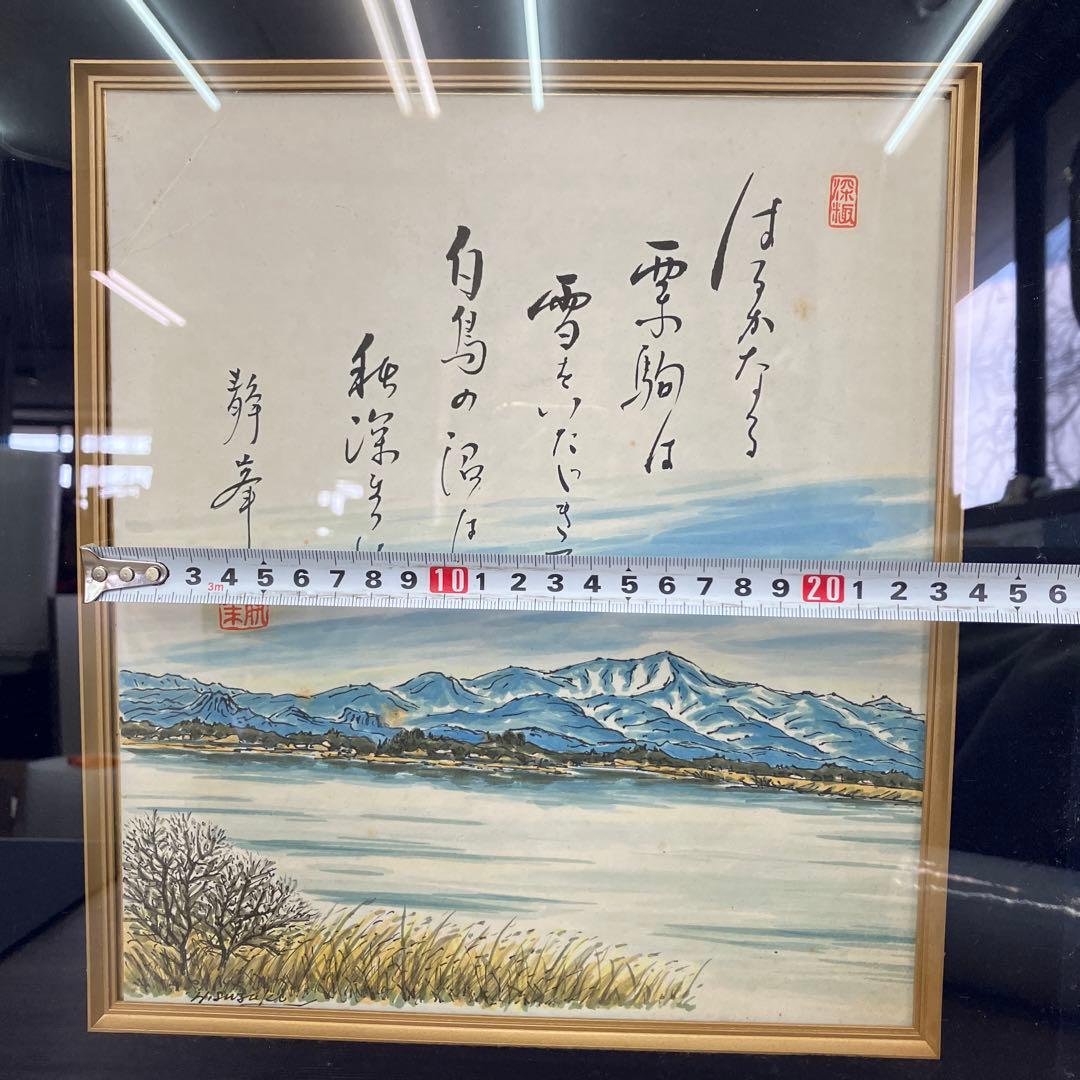 深趣
はるかなる
栗駒は
雪をいたゞきて
白鳥の沼は
秋深き
静峯
3 4 5 6 7 8 9 10 1 2 3 4 5 6 7 8 9 20 1 2 3 4 5 6
3m
H.suzuki